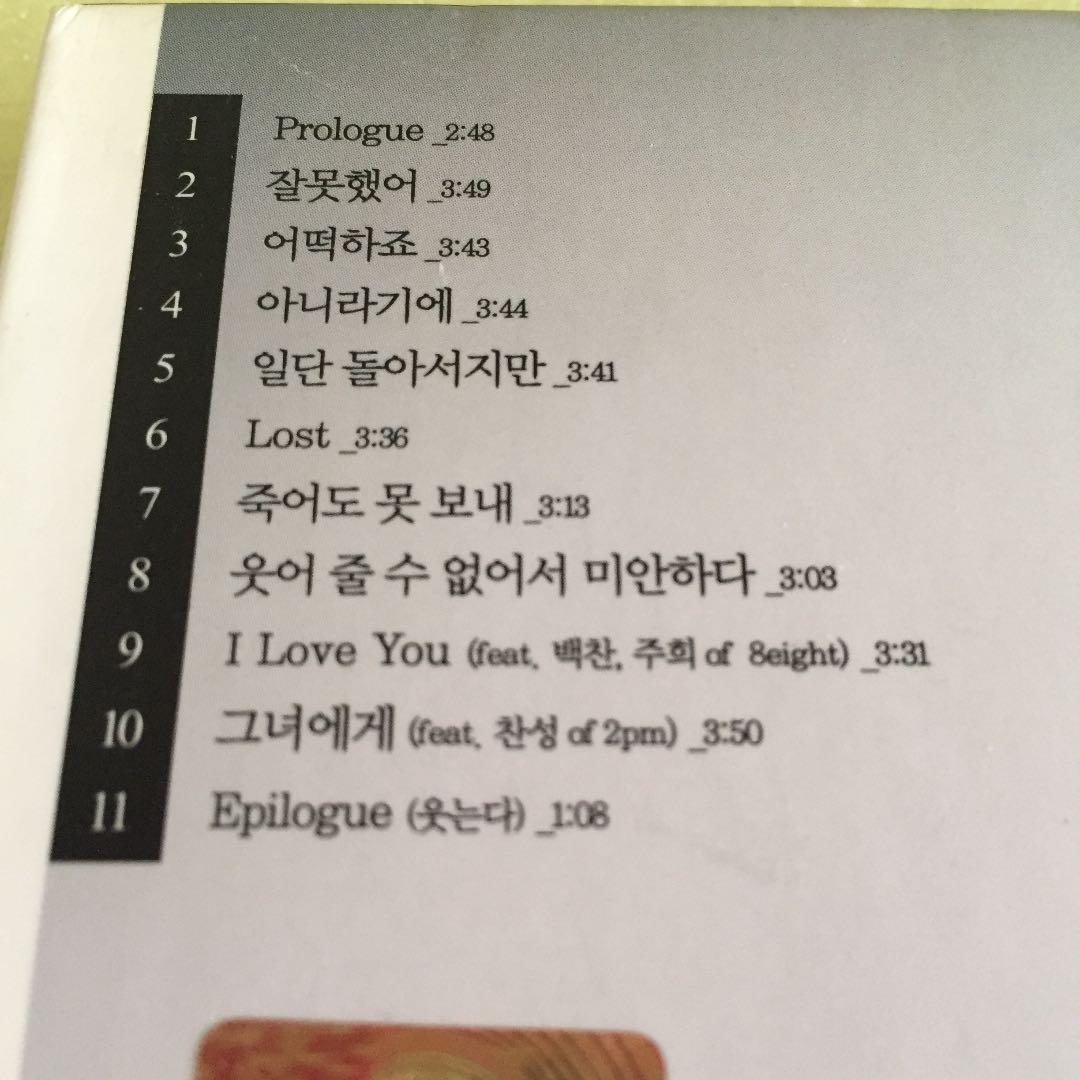 1 Prologue _2:48
2 잘못했어 _3:49
3 어떡하죠 _3:43
4 아니라기에 _3:44
5 일단 돌아서지만 _3:41
6 Lost _3:36
7 죽어도 못 보내 _3:13
8 웃어 줄 수 없어서 미안하다 _3:03
9 I Love You (feat. 백찬, 주희 of 8eight) _3:31
10 그녀에게 (feat. 찬성 of 2pm) _3:50
11 Epilogue (웃는다) _1:08